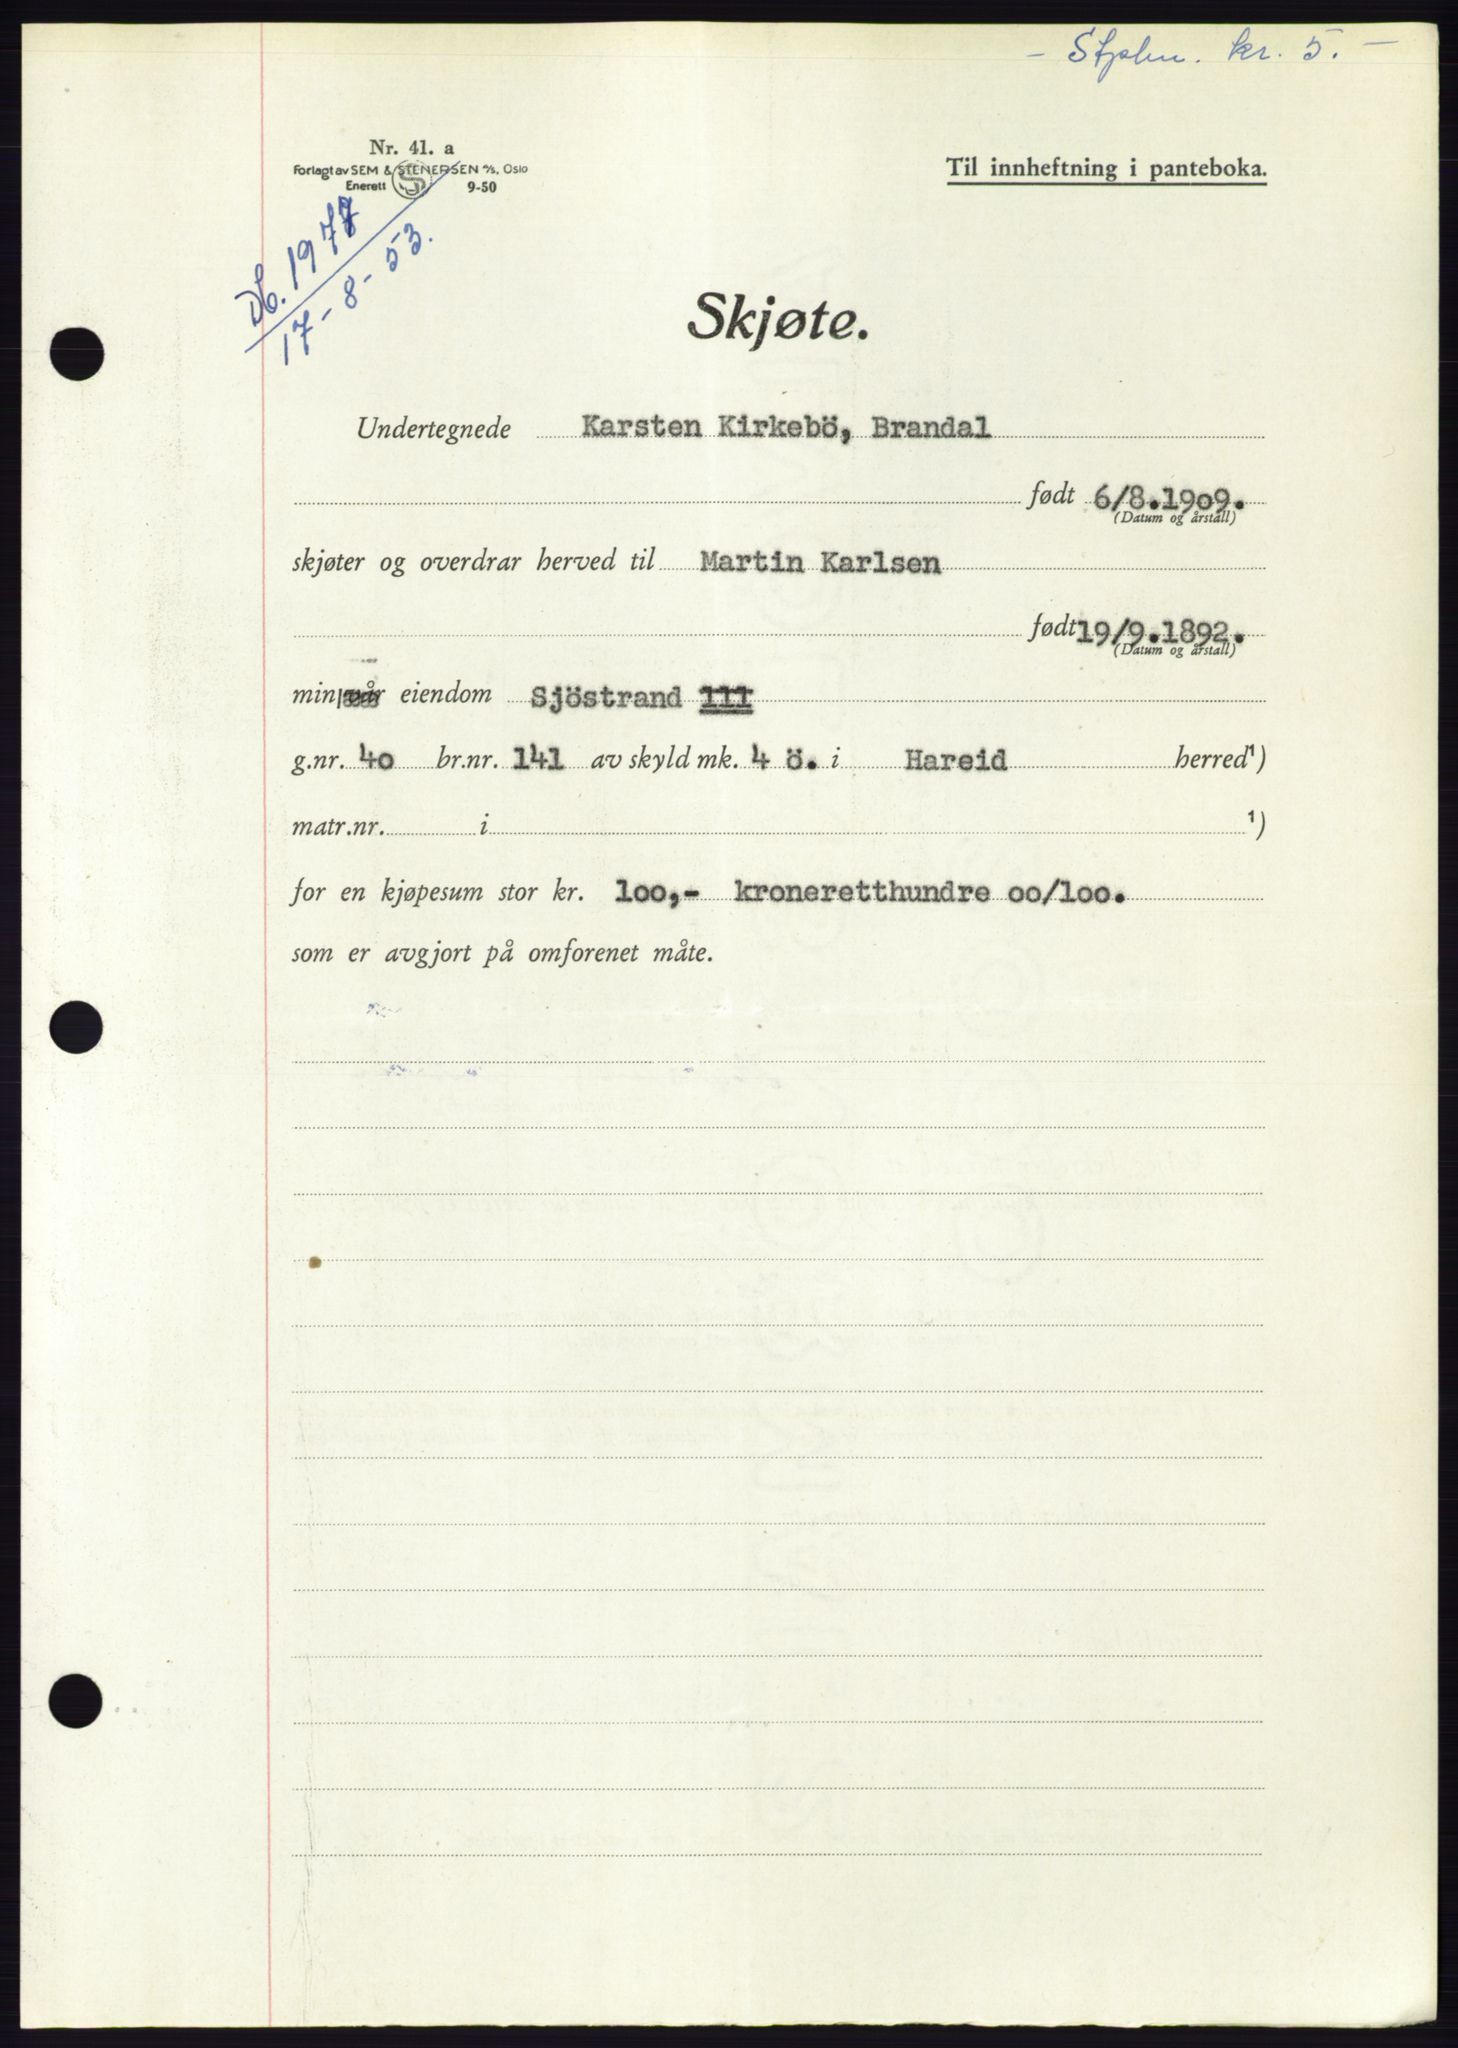 - Stplm. kr. 5. -
Nr. 41. a
Forlagt av SEM & STENERSEN A/S, Oslo
Enerett 9-50
Til innheftning i panteboka.
Db. 1977
17-8-53.
Skjøte.
Undertegnede Karsten Kirkebö, Brandal
født 6/8.1909.
(Datum og årstall)
skjøter og overdrar herved til Martin Karlsen
født 19/9.1892.
(Datum og årstall)
min/vår eiendom Sjöstrand 111
g.nr. 40 br.nr. 141 av skyld mk. 4 ö. i Hareid herred¹)
matr.nr. i ¹)
for en kjøpesum stor kr. 100,- kroneretthundre oo/loo.
som er avgjort på omforenet måte.